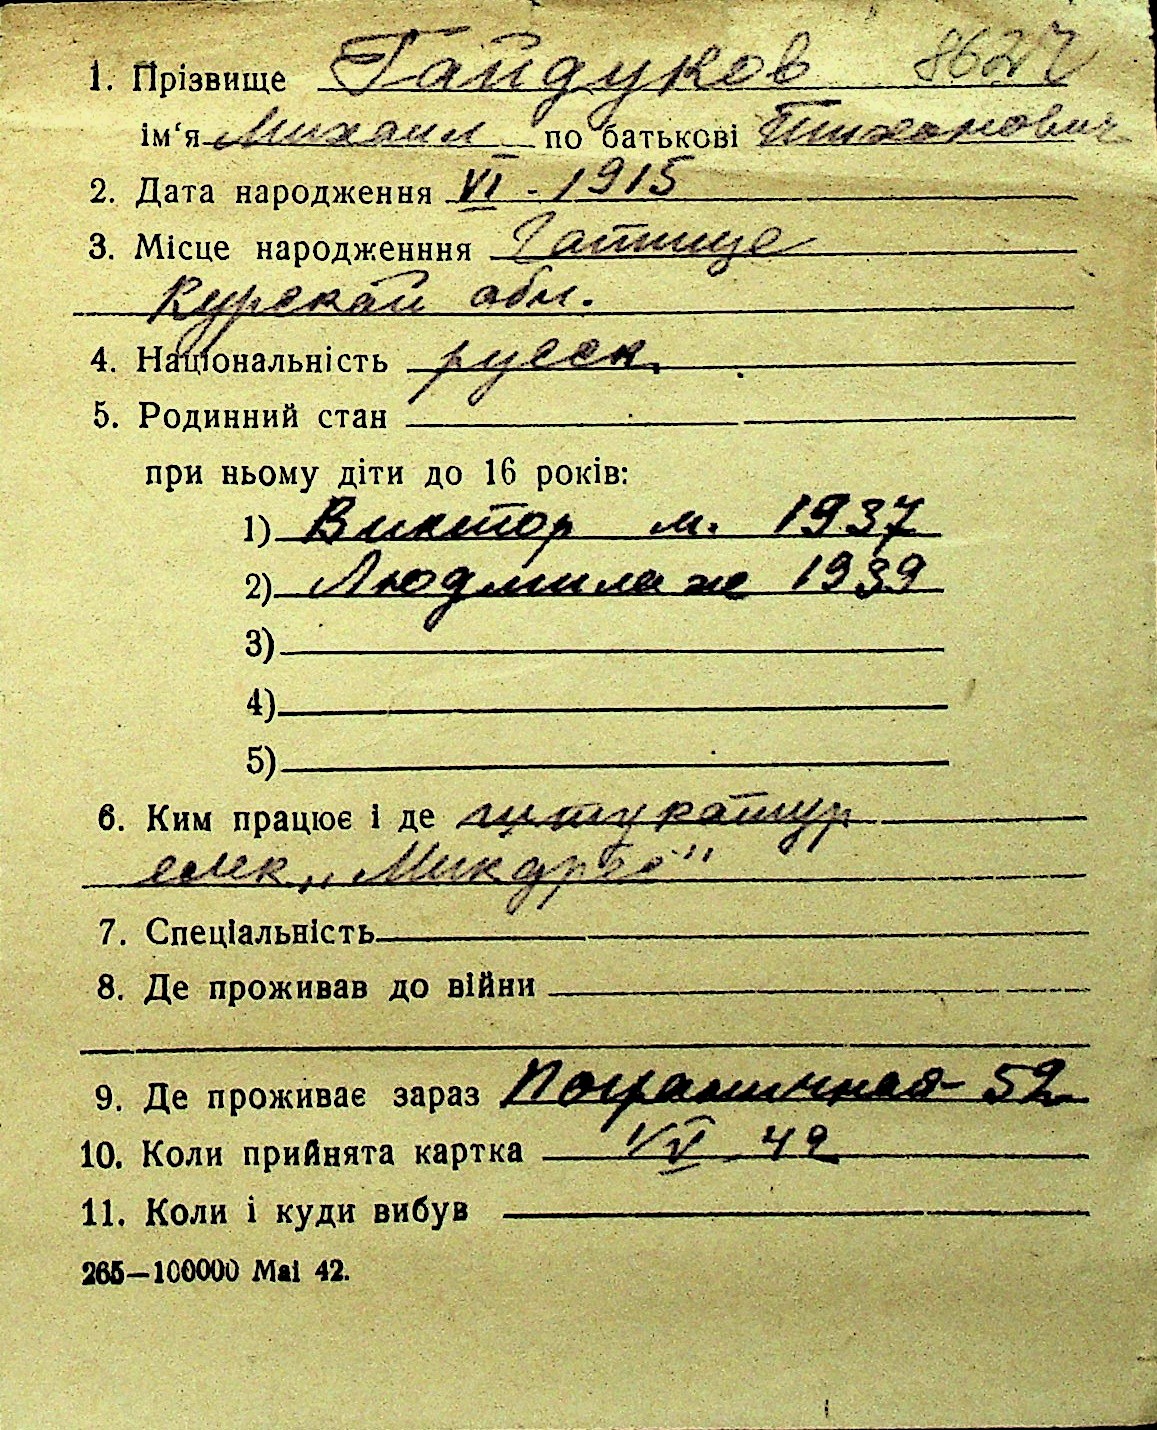 1. Прізвище Гайдуков
ім‘я Михаил по батькові Тихонович
2. Дата народження VI - 1915
3. Місце народженння Гатище
Курской обл.
4. Національність русск.
5. Родинний стан
при ньому діти до 16 років:
1) Виктор м. 1937
2) Людмила ж 1939
3)
4)
5)
6. Ким працює і де штукатур
7. Спеціальність
8. Де проживав до війни
9. Де проживає зараз Пограничная 52
10. Коли прийнята картка 1/VI 42
11. Коли і куди вибув
265—100000 Маі 42.